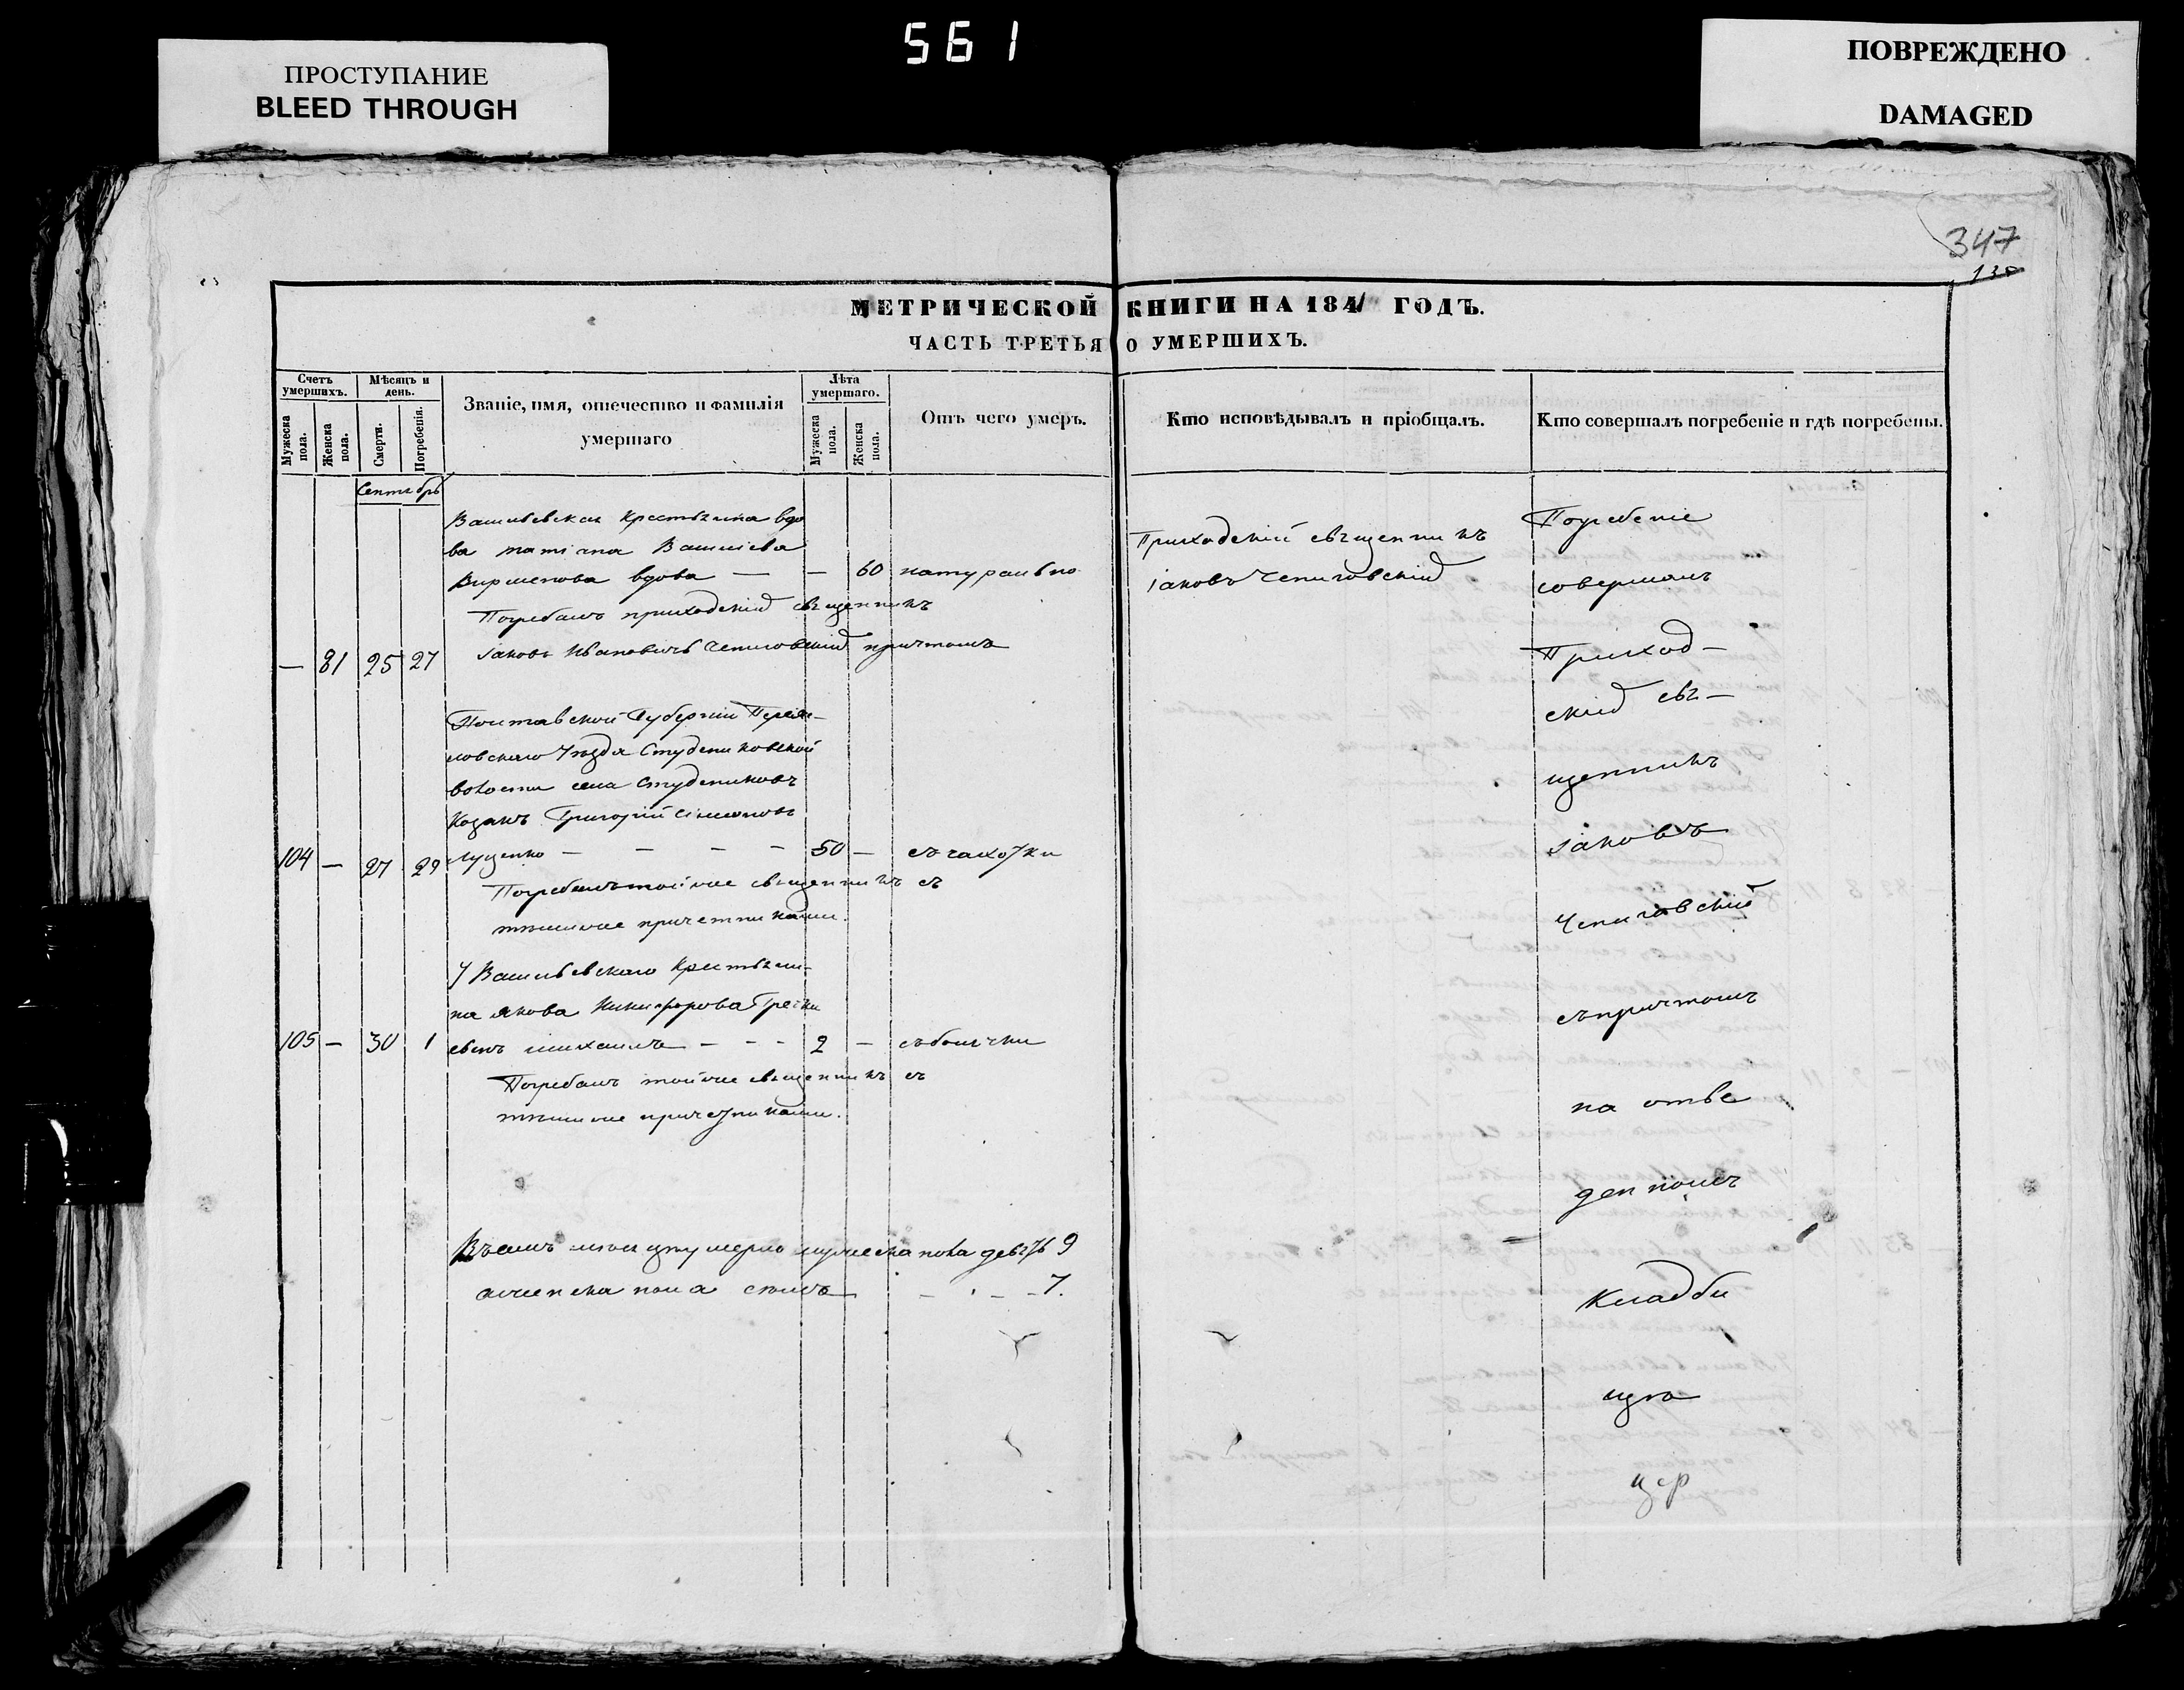 561
ПРОСТУПАНИЕ
BLEED THROUGH
ПОВРЕЖДЕНО
DAMAGED
347
МЕТРИЧЕСКОЙ КНИГИ НА 1841 ГОДЪ.
ЧАСТЬ ТРЕТЬЯ О УМЕРШИХЪ.
Счетъ умершихъ.
Мужеска пола.
Женска пола.
Мѣсяцъ и день.
Смерти.
Погребенія.
Званіе, имя, отечество и фамилія умершаго
Лѣта умершаго.
Мужеска пола.
Женска пола.
Отъ чего умеръ.
Кто исповѣдывалъ и пріобщалъ.
Кто совершалъ погребеніе и гдѣ погребены.
Сентябрь
Васильевская Крестьянка вдо
ва Татіана Василіева
вдова — — 60 натурально
Погребалъ приходскій священникъ
— 81 25 27 Іаковъ Ивановичъ Чепиговскій причтомъ
Полтавской Губерніи Переяс-
ловскаго Уѣзда Студениковской
волости села Студениковъ
Козакъ Григорій Симоновъ
104 — 27 29 Луценко — — — — 50 — съ чахотки
Погребалъ тойже священникъ съ
тѣмиже причетниками.
У Васильевскаго Крестьяни-
на Якова Никифорова
105 — 30 1 сынъ Михаилъ — - - 2 —
Погребалъ тойже священникъ съ
тѣмиже причетниками.
Въ семъ мѣсяцѣ умерло мужеска пола девять 9
а женска пола семь — . — — 7.
Приходскій священникъ
Іаковъ Чепиговскій
Погребеніе
совершалъ
Приход-
скій свя-
щенникъ
Іаковъ
Чепиговскій
съ причтомъ
на отве
денномъ
Кладби
щѣ